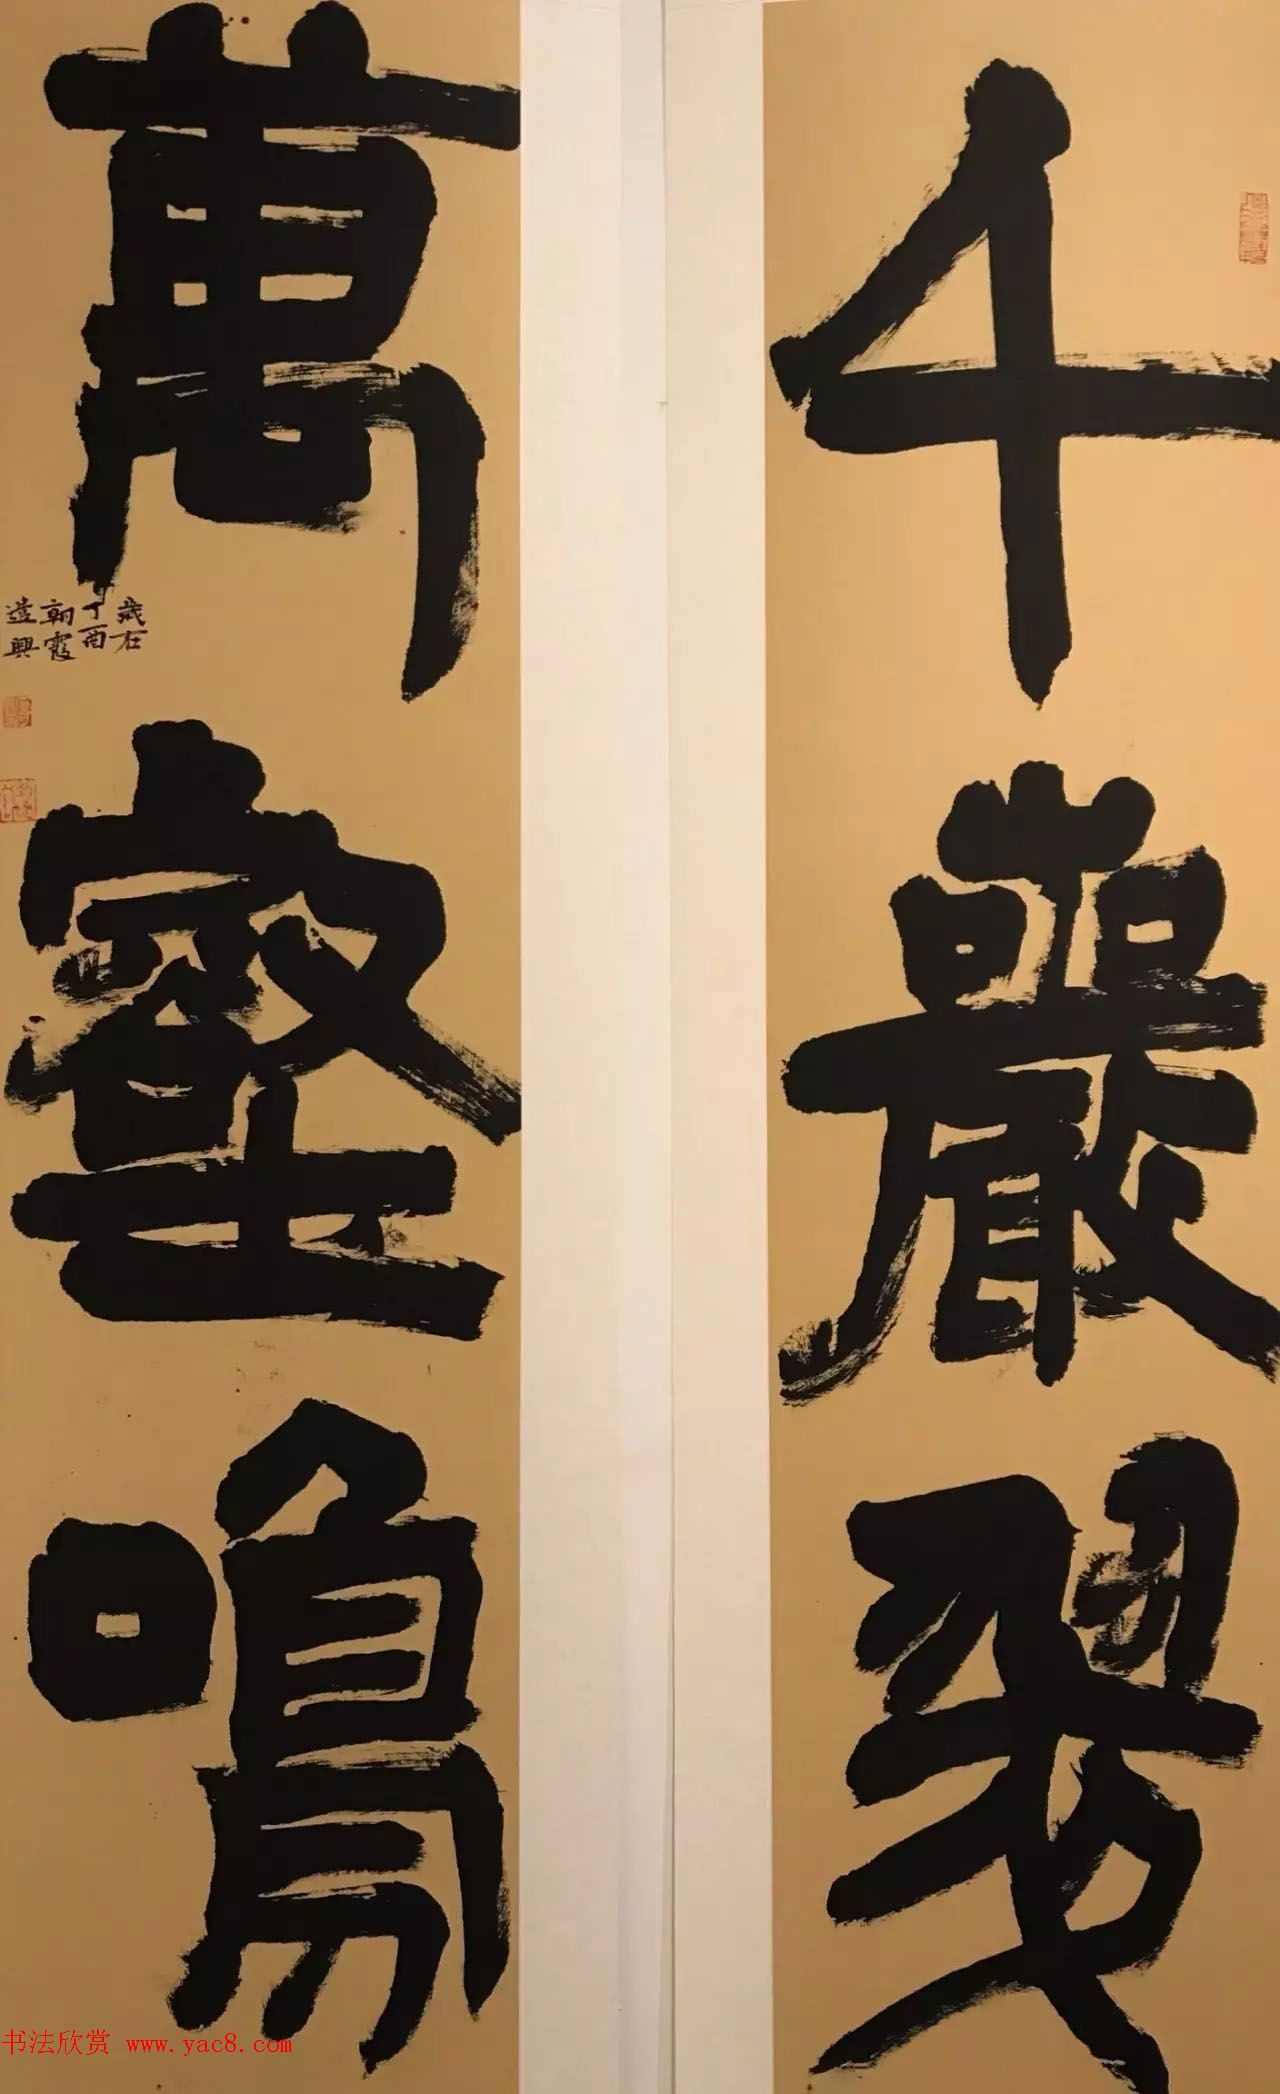 千巖
萬壑鳴
歲在
丁酉
朝霞
遣興
书法欣赏 www.yac8.com